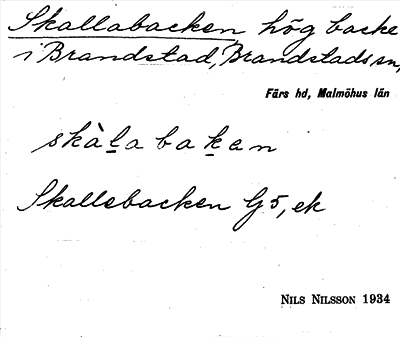 Skallabacken, hög backe
i Brandstad, Brandstads sn,
Färs hd, Malmöhus län
skàl̲a bak̲en
Skallebacken G 5, ek
NILS NILSSON 1934